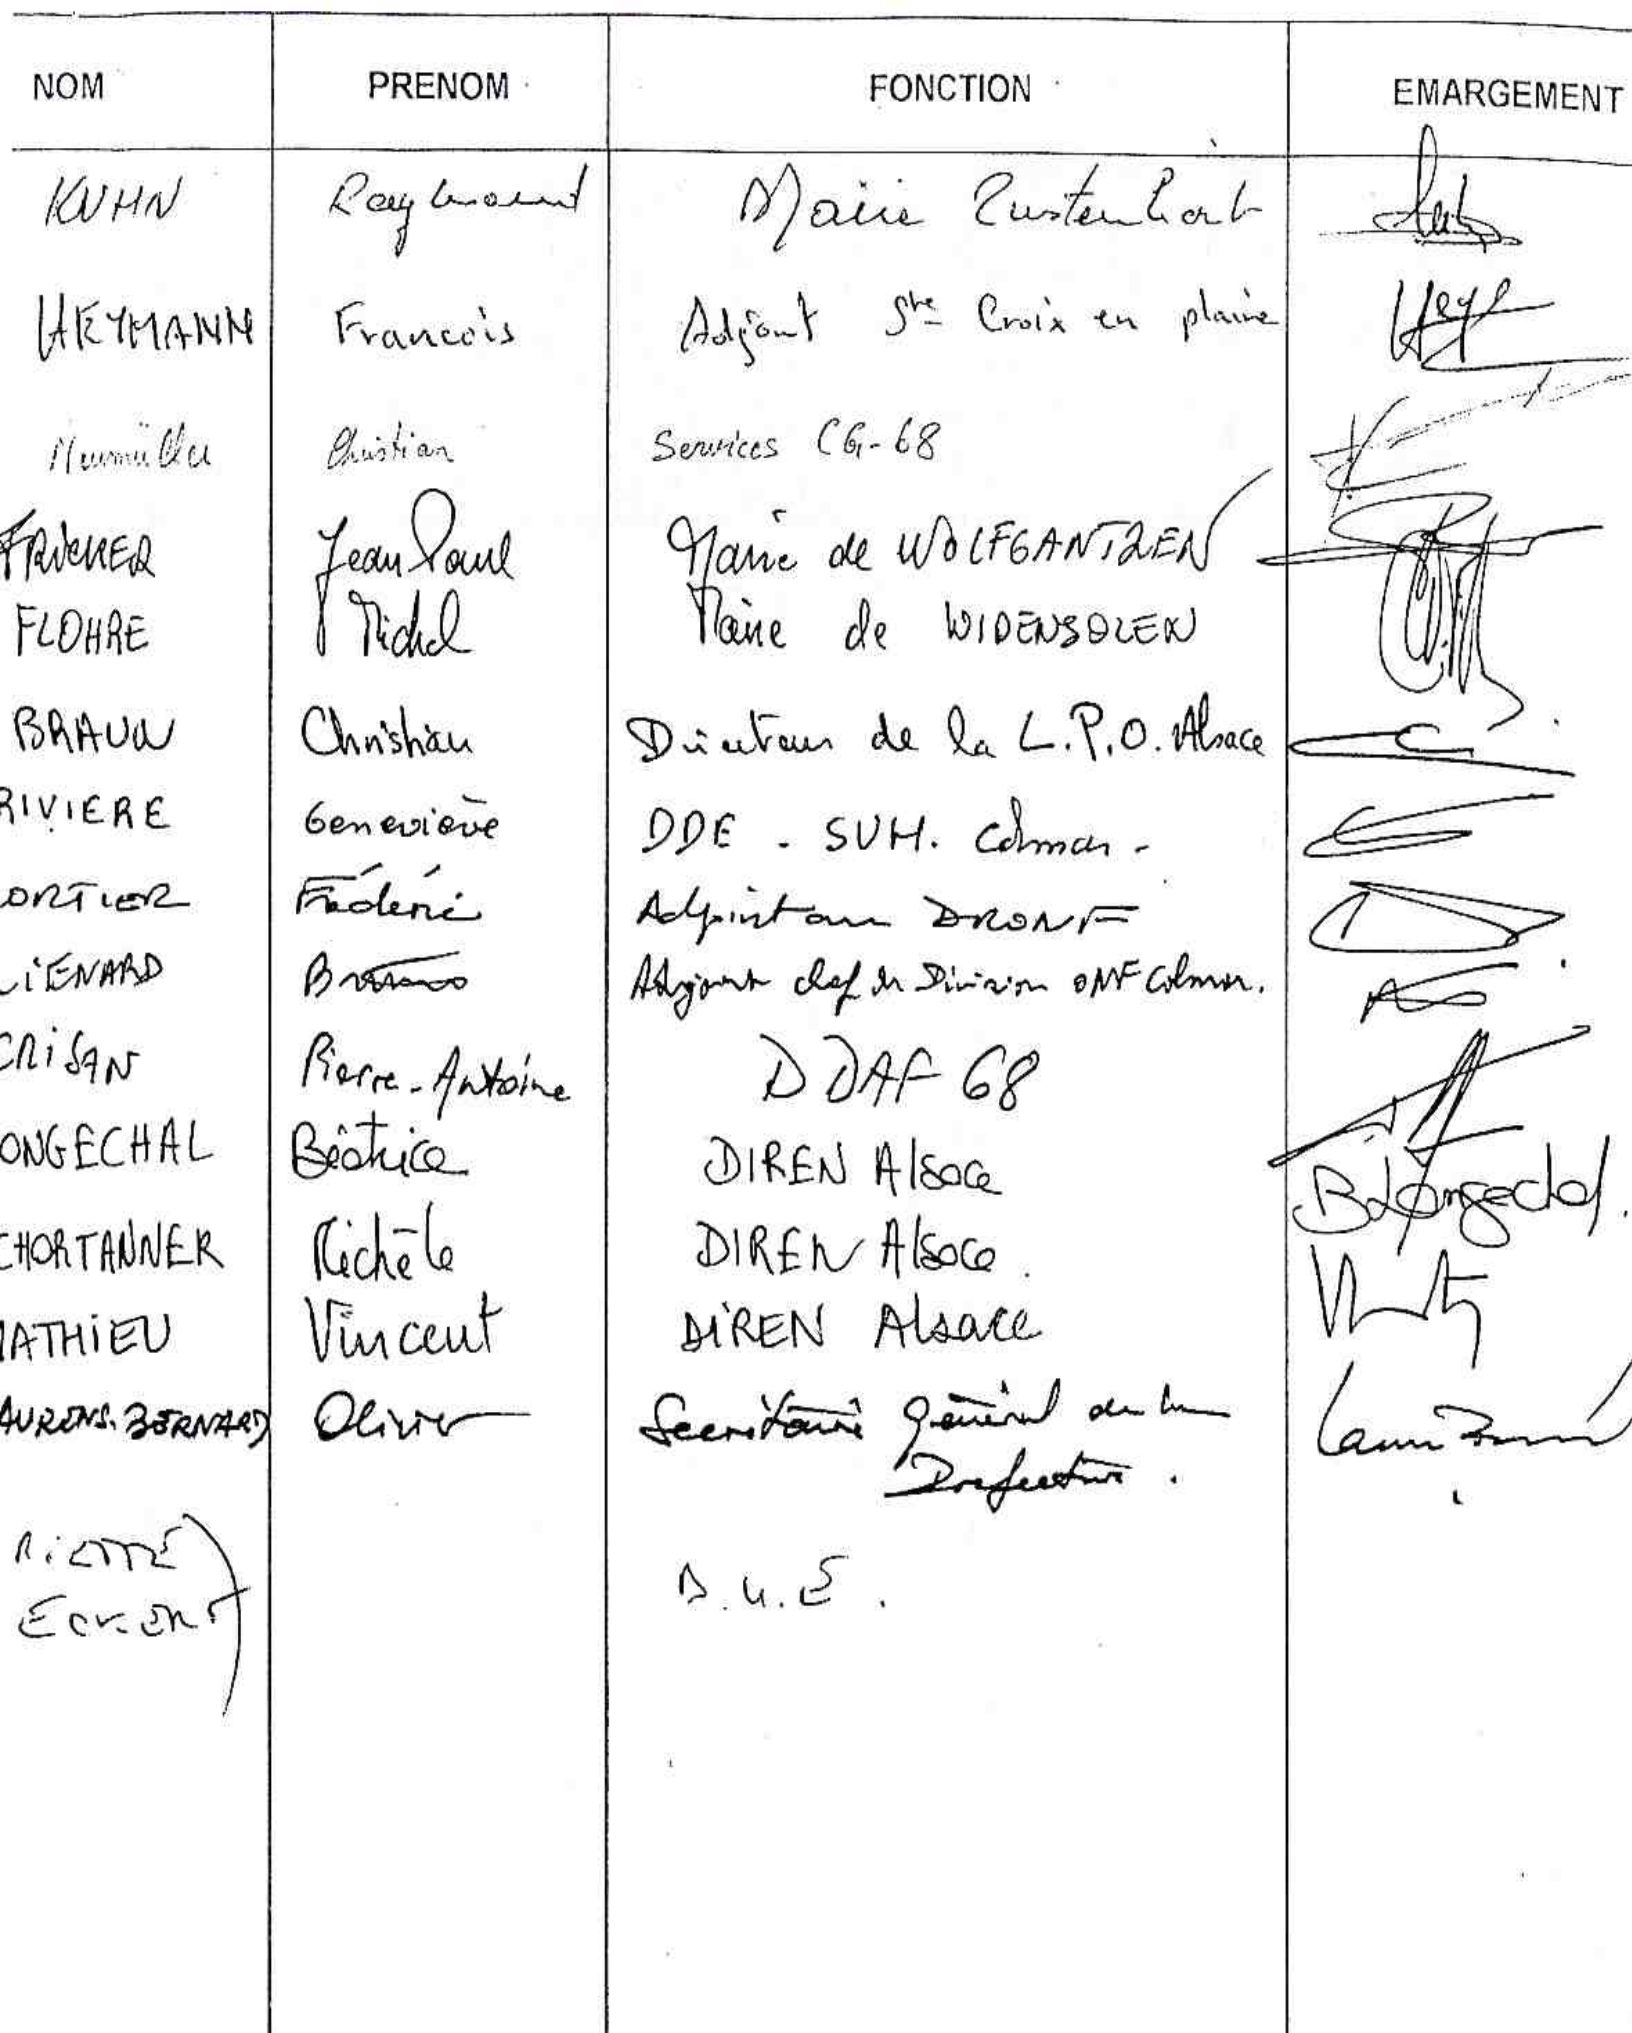 NOM PRENOM FONCTION EMARGEMENT
KUHN Raymond Maire Rustenhart
HEYMANN Francois Adjoint Ste Croix en plaine
Neumüller Christian Services CG-68
FRICKER Jean Paul Maire de WOLFGANTZEN
FLOHRE Michel Maire de WIDENSOLEN
BRAUN Christian Directeur de la L.P.O. Alsace
RIVIERE Geneviève DDE - SUH. Colmar -
ORTIER Frédéric Adjoint au DRONF
LIENARD Bruno Adjoint chef de Division ONF Colmar.
CRISAN Pierre-Antoine DDAF 68
ONGECHAL Béatrice DIREN Alsace B Longechal.
CHORTANNER Michèle DIREN Alsace.
MATHIEU Vincent DIREN Alsace
AURENS-BERNARD Olivier Secrétaire Général de la
Préfecture.